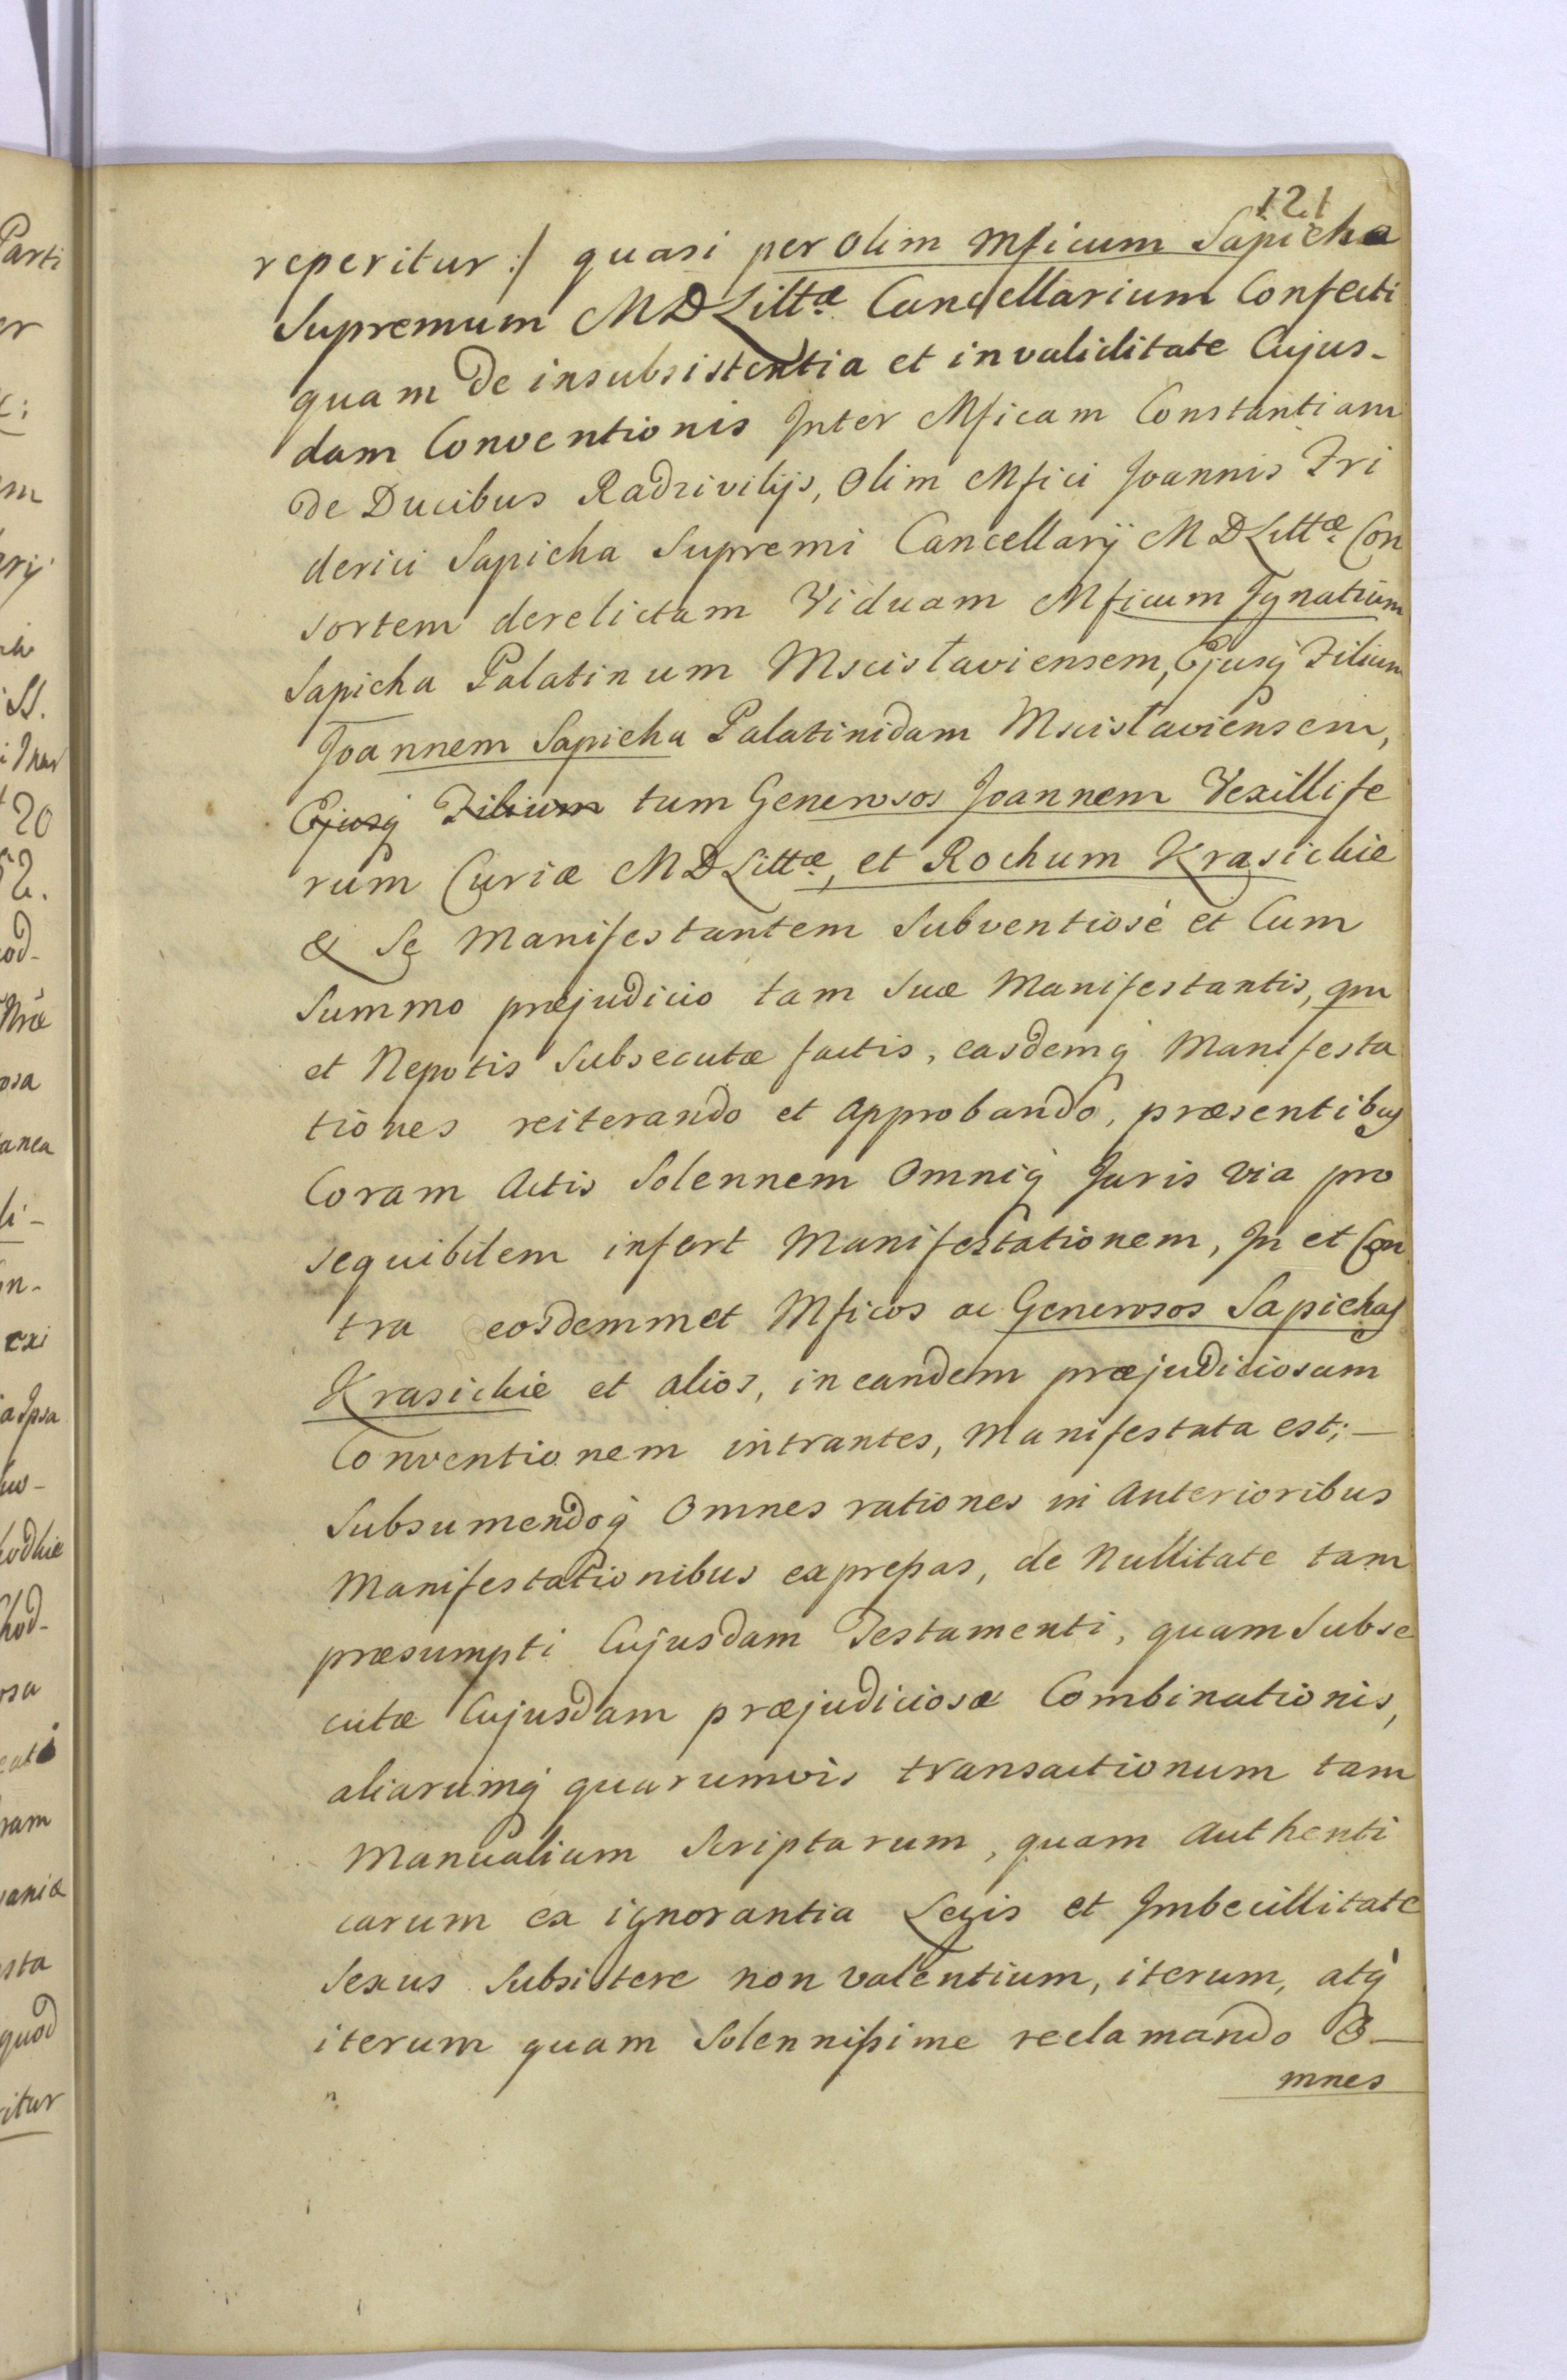 121
reperitur :/ quasi per olim Mficum Sapieha
Supremum M D Littæ Cancellarium Confecti
quam de insubsistentia et invaliditate Cujus-
dam Conventionis Inter Mficam Constantiam
de Ducibus Radzivilijs, olim Mfici Joannis Fri
derici Sapieha Supremi Cancellarij M D Littæ Con
sortem derelictam Viduam Mficum Ignatium
Sapieha Palatinum Mscislaviensem, Ejusq́ Filium
Joannem Sapieha Palatinidam Mscislaviensem,
Ejusq́ Filium tum Generosos Joannem Vexillife
rum Curiæ M D Littæ, et Rochum Krasickie
& Se Manifestantem Subventiosè et Cum
Summo præjudicio tam Suæ Manifestantis, qm
et Nepotis Subsecutæ factis, easdemq́ Manifesta
tiones reiterando et approbando, præsentibus
Coram Actis Solennem Omniq́ Juris via pro
sequibilem infert Manifestationem, In et Con
tra eosdemmet Mficos ac Generosos Sapiehas
Krasickie et alios, in eandem præjudiciosam
Conventionem intrantes, Manifestata est; —
Subsumendoq́ Omnes rationes in Anterioribus
Manifestationibus expreßas, de Nullitate tam
præsumpti Cujusdam Testamenti, quam Subse
cutæ Cujusdam præjudiciosæ Combinationis,
aliarumq́ quarumvis transactionum tam
Manualium Scriptarum, quam Authenti
carum ex ignorantia Legis et Imbecillitate
Sexus Subsistere non valentium, iterum, atq́
iterum quam Solennißime reclamando O—
mnes
Parti
er
20
52.
cod-
osa
anea
exi
a Ipsa
hod-
osa
ram
aniæ
sta
quod
itur